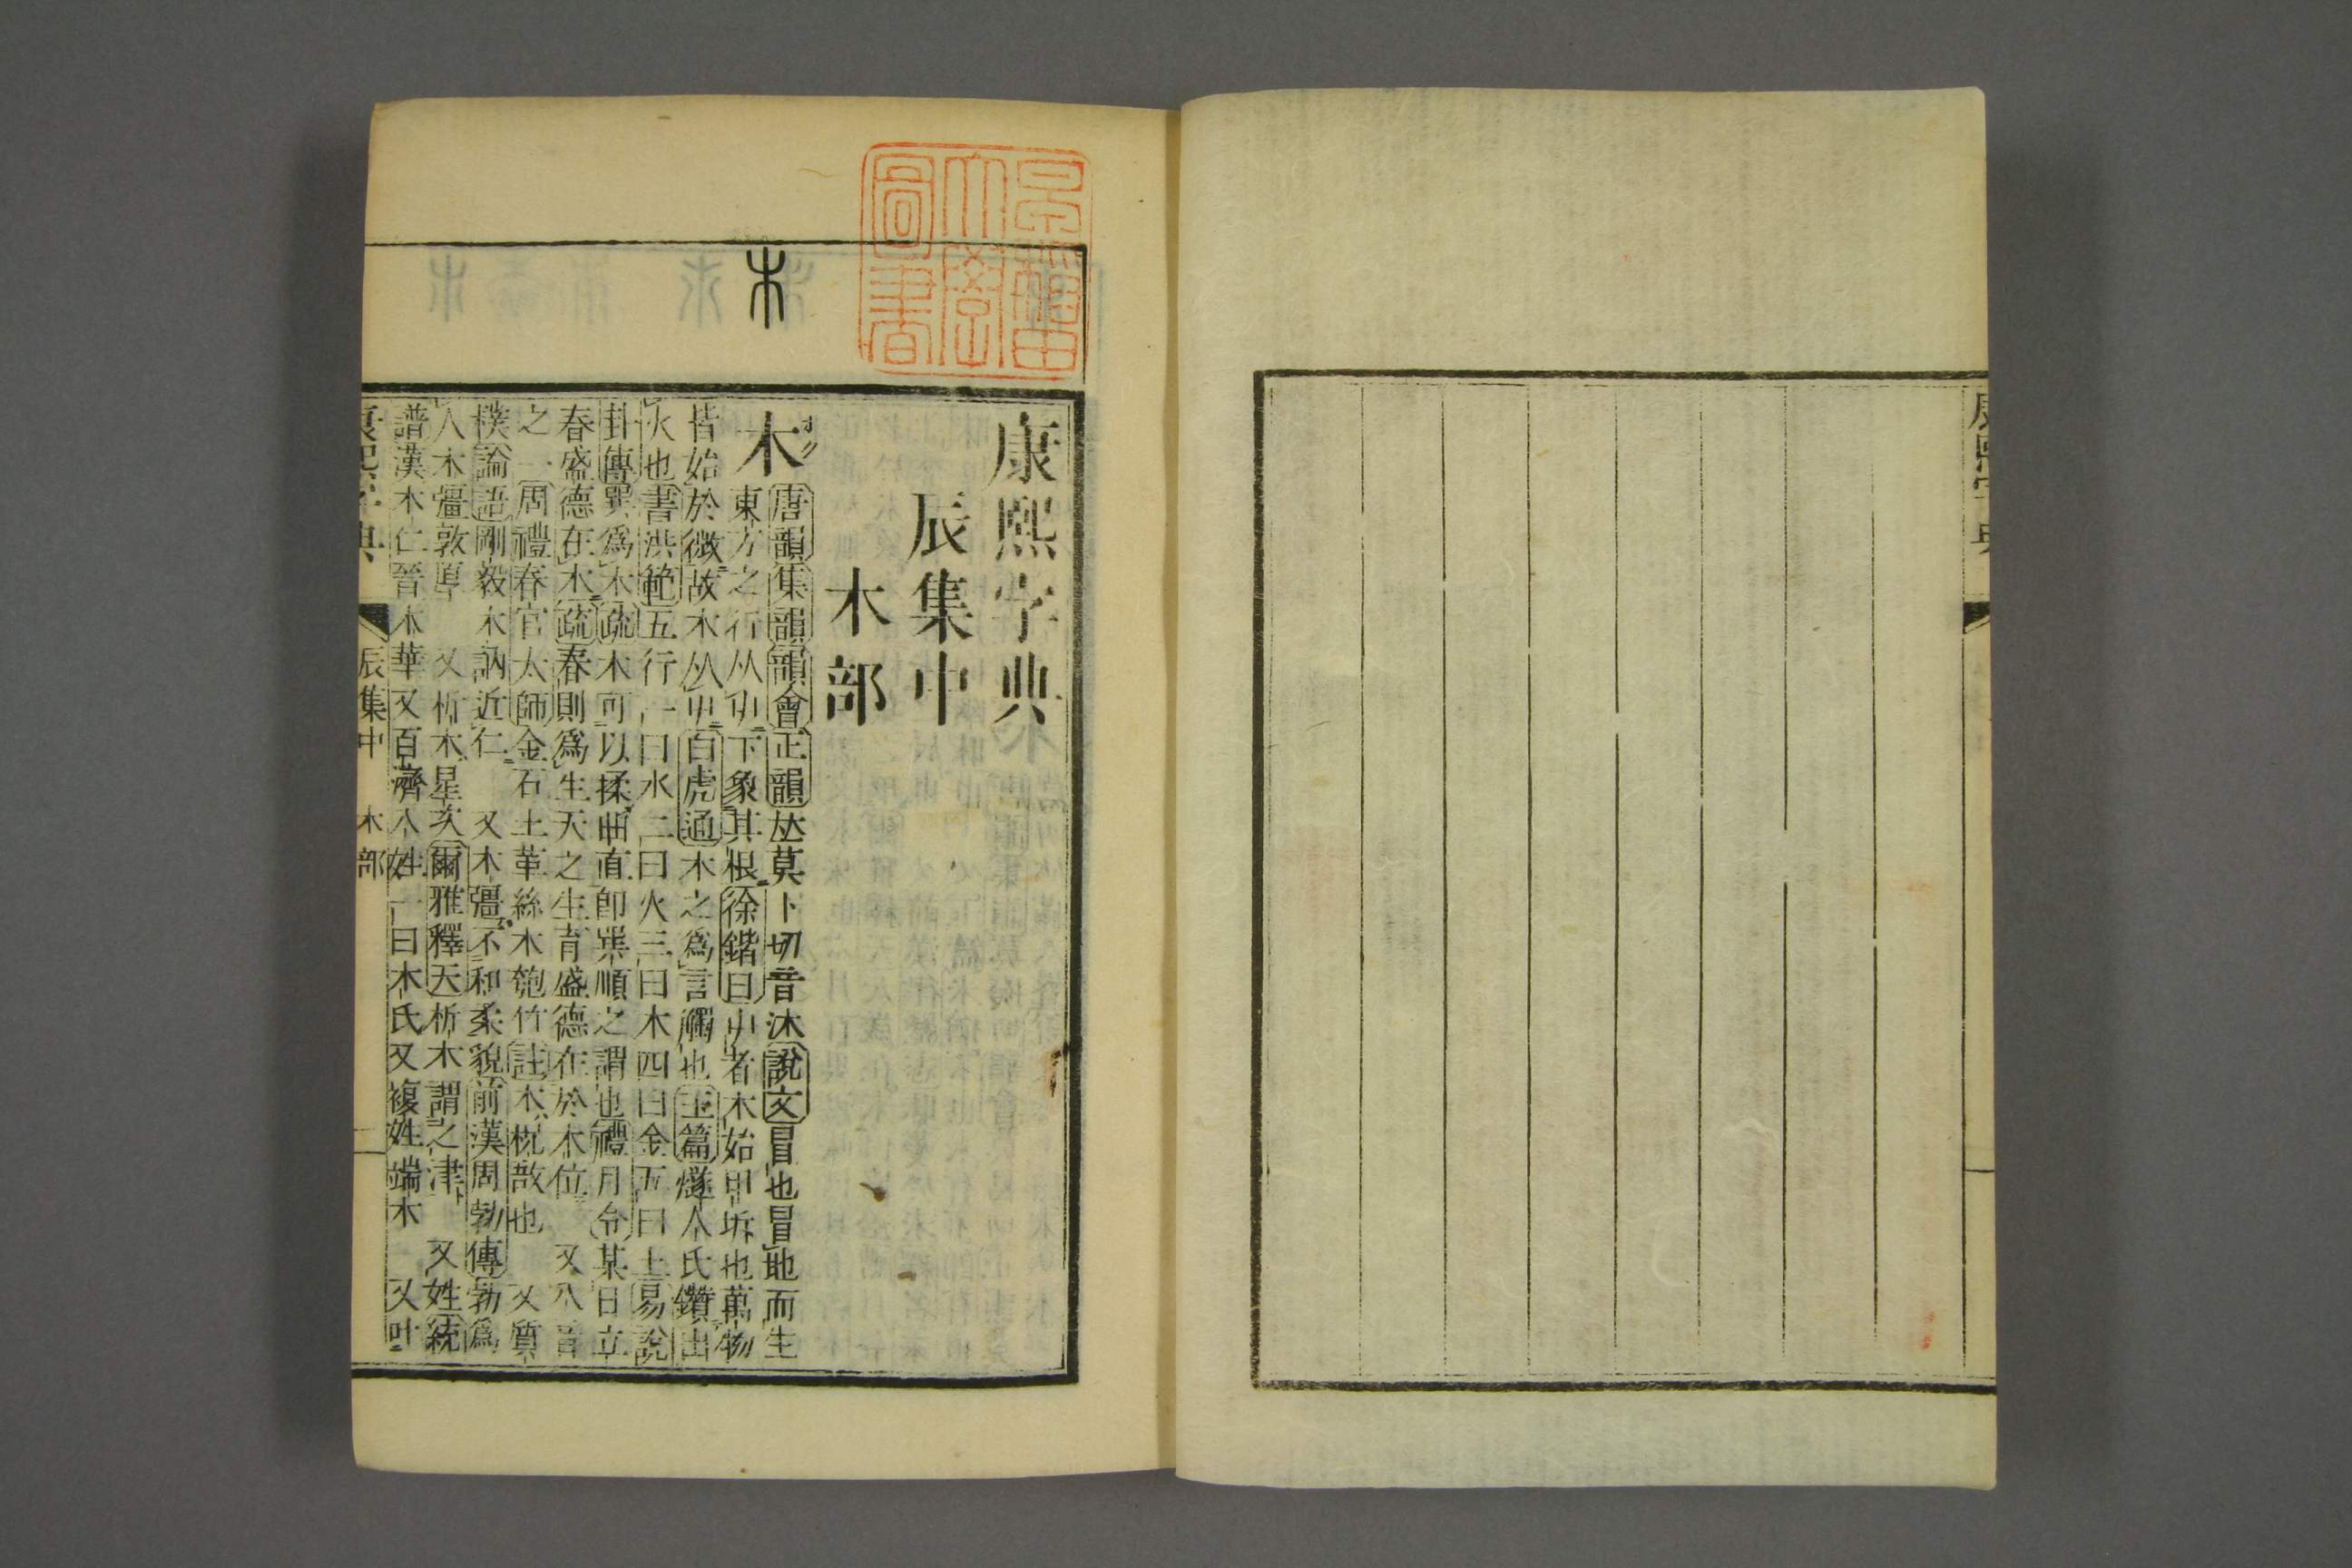 康熙字典
早稲田大學圖書
木
康熙字典
辰集中
木部
木 唐韻集韻韻會正韻𠀤莫卜切音沐說文冒也冒地而生
東方之行从屮下象其根徐鍇曰屮者木始甲坼也萬物
皆始於微故木从屮白虎通木之爲言觸也玉篇燧人氏鑽出
火也書洪範五行一曰水二曰火三曰木四曰金五曰土易說
卦傳巽爲木疏木可以揉曲直卽巽順之謂也禮月令某日立
春盛德在木疏春則爲生天之生育盛德在於木位 又八音
之一周禮春官太師金石土革絲木匏竹註木柷敔也 又質
樸論語剛毅木訥近仁 又木彊不和柔貌前漢周勃傳勃爲
人木彊敦厚 又析木星次爾雅釋天析木謂之津 又姓統
譜漢木仁晉木華又百濟八姓一曰木氏又複姓端木 又叶
康熙字典 辰集中 木部 一